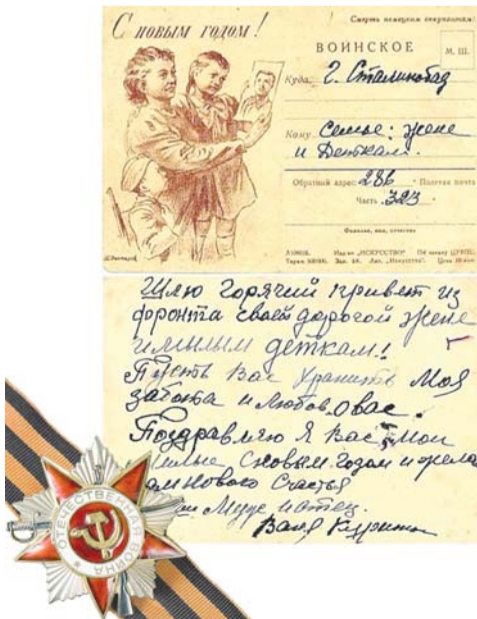 С новым годом!
Смерть немецким оккупантам!
ВОИНСКОЕ
М. Ш.
Куда: г. Сталинобад
Кому Семье: жене
и Деткам.
Обратный адрес: 286 Полевая почта
Часть 323
Фамилия, имя, отчество
Изд-во „ИСКУССТВО"
Шлю горячий привет из
фронта своей дорогой жене
и милым деткам!
Пусть Вас хранить Моя
забота и любов, о вас.
Поздравляю Я Вас Мои
милые с новым годом и жела
ам нового счастья
Муж и отец.
Ваня
ОТЕЧЕСТВЕННАЯ ВОЙНА